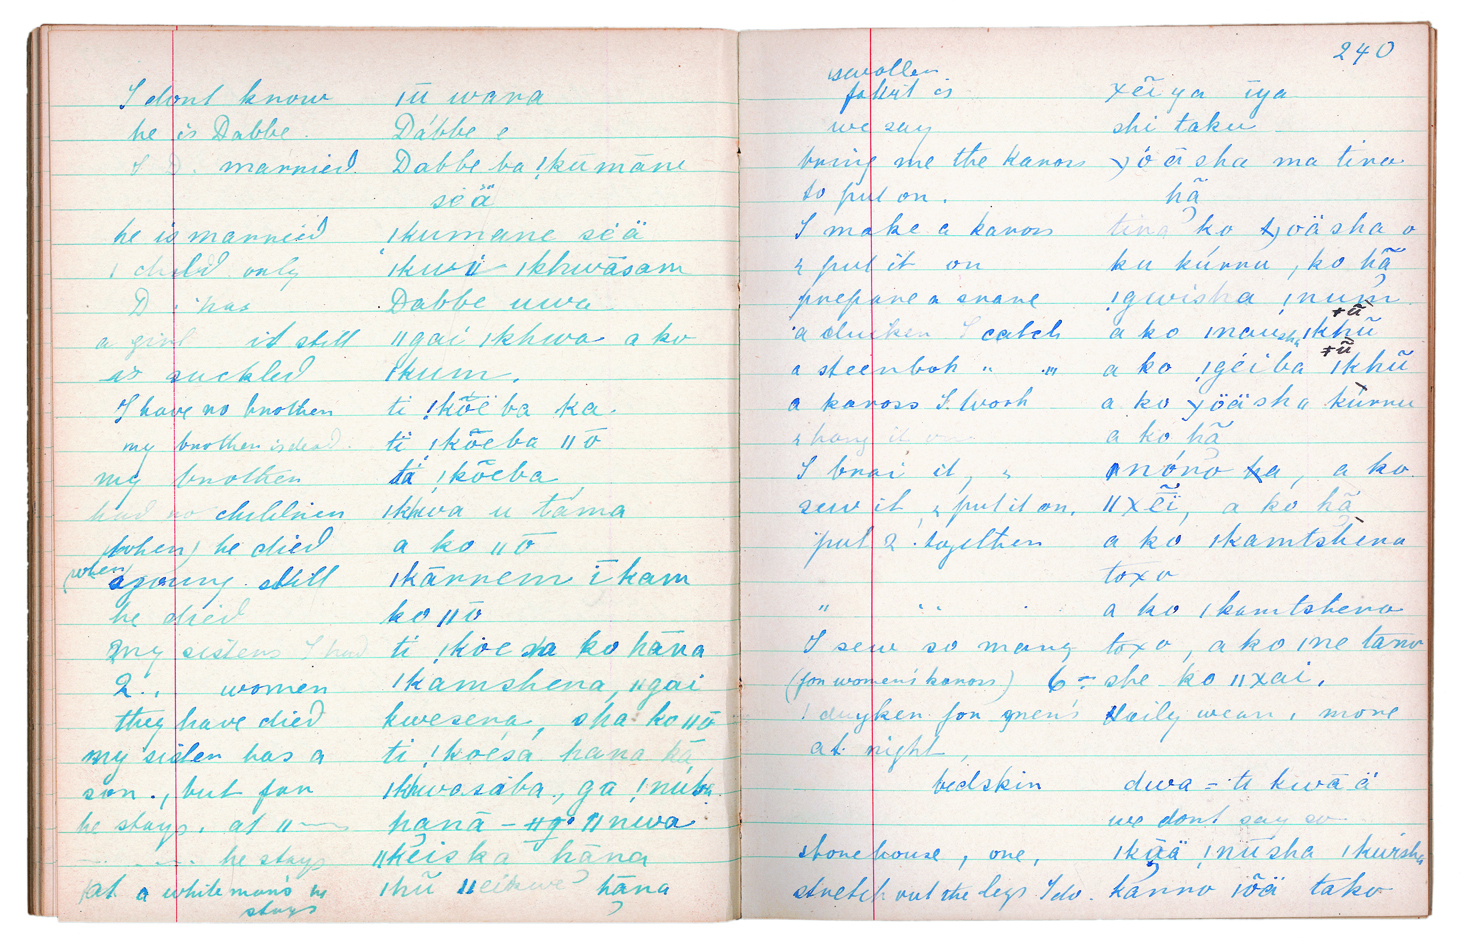 I dont know ǀū wana
he is Dabbe. Dábbe e
I D. married. Dabbe ba ǃkūmāne
séä
he is married ǀkumane séä
1 child only ǀkwi ǀkhwāsam
D has Dabbe uwa
a girl it still ǁgai ǀkhwa a ko
is suckled ǀkum.
I have no brother ti ǃkōë ba ka.
my brother is dead. ti ǃkõeba ǁō
my brother tá ǃkõeba
had no children ǀkhwa u tāma
(when) he died a ko ǁō
(when) a young still ǀkānnem ī kam
he died ko ǁō
my sisters I had ti ǃkoe sna ko hāna
2 women ǀkamshena, ǁgai
they have died kwesena, sha ko ǁō
my sister has a ti ǃkoésá hana kā
son, but far ǀkhwasába, ga ǃnúba.
he stays at ǁ hanā - ǁnwa
he stays ǁkēiska hāna
at a white man's he ǀhū hāna
stays
240
swollen
is xēï ya īya
we say shi taku
bring me the kaross óāsha ma tina
to put on. hã
I make a kaross tina ko öäsha o
& put it on ku kúrnu, ko hã
prepare a snare ǃgwisha ǃnum
ǂũ
a duiken I catch a ko ǀnausha ǀkhũ
ǂũ
a steenbok " " a ko ǃgéiba ǀkhũ
a kaross I. work a ko öäsha kúrnu
& hang it on a ko hã
I brai it, " ǀnóno ha, a ko
sew it, & put it on. ǁxēï, a ko hã
put 2 together a ko ǀkamtshena
toxo
" " " a ko ǀkamtshena
I sew so many toxo, a ko ǀne tano
(for women's kaross) 6 = she ko ǁxai.
1 duyken for men's daily wear, more
at night,
bedskin dwa = ti kwā ä
we dont say so
stonehouse, one, ǀkāä ǃnūsha ǀkwisha
stretch out the legs I do. kanno ǀōä tako